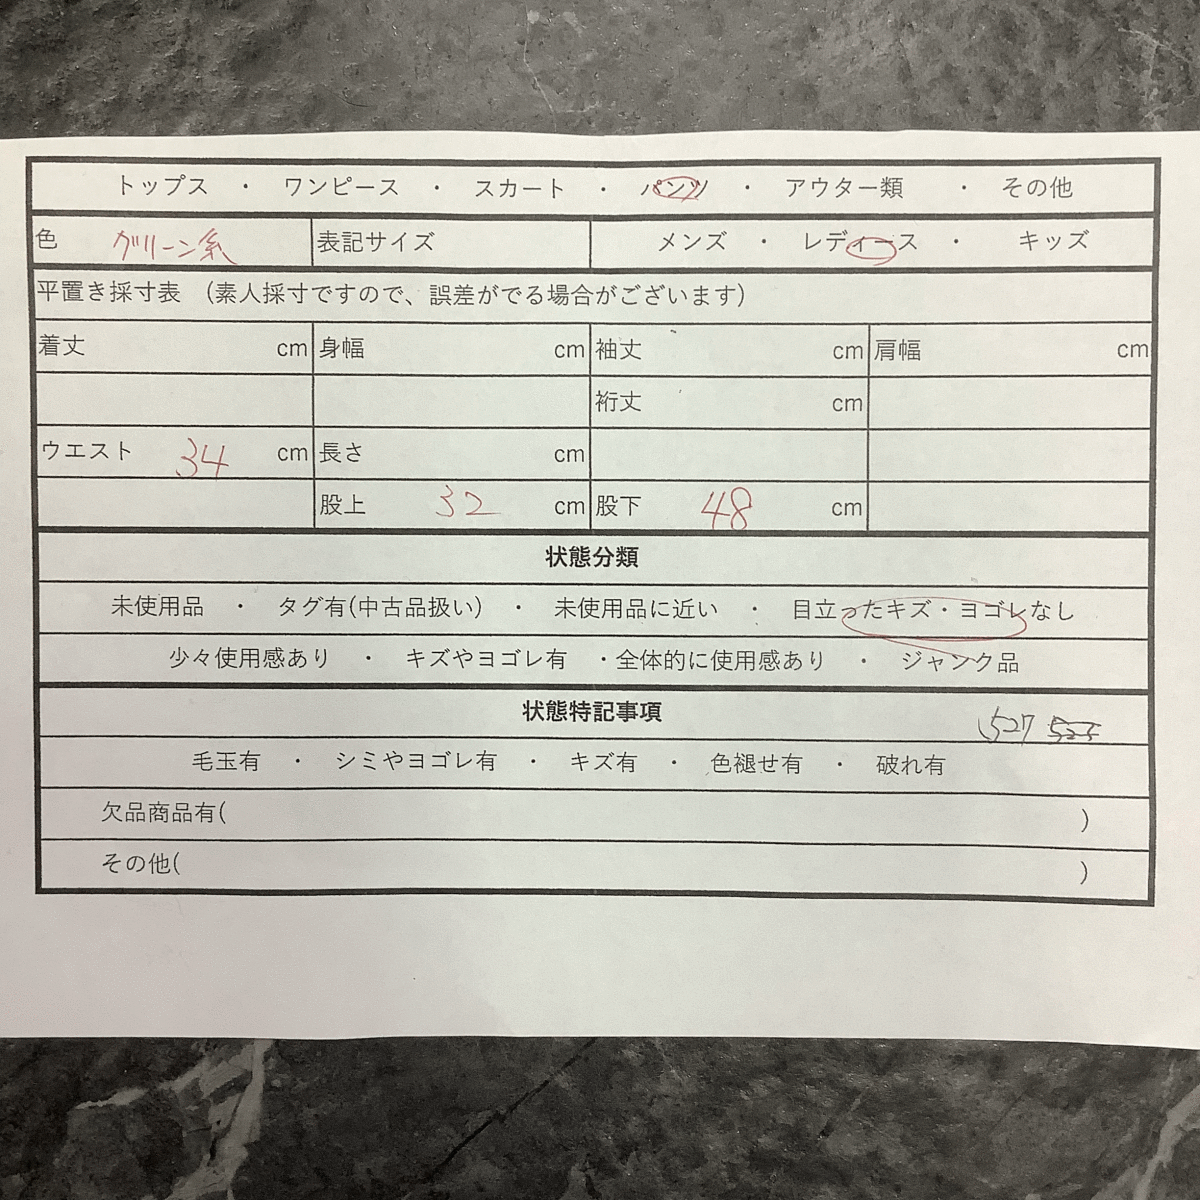 トップス ・ ワンピース ・ スカート ・ パンツ ・ アウター類 ・ その他
色 グリーン系 表記サイズ メンズ ・ レディース ・ キッズ
平置き採寸表 (素人採寸ですので、誤差がでる場合がございます)
着丈 cm 身幅 cm 袖丈 cm 肩幅 cm
裄丈 cm
ウエスト 34 cm 長さ cm
股上 32 cm 股下 48 cm
状態分類
未使用品 ・ タグ有(中古品扱い) ・ 未使用品に近い ・ 目立ったキズ・ヨゴレなし
少々使用感あり ・ キズやヨゴレ有 ・全体的に使用感あり ・ ジャンク品
状態特記事項 527
毛玉有 ・ シミやヨゴレ有 ・ キズ有 ・ 色褪せ有 ・ 破れ有
欠品商品有( )
その他( )